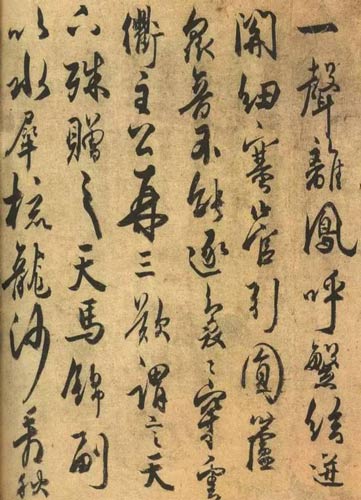 一聲離鳳呼繁絃迸
關紐塞管引圓蘆
眾音不能逐裊々穿雲
衢主公再三歎謂言天
下殊贈之天馬錦副
以水犀梳龍沙看秋